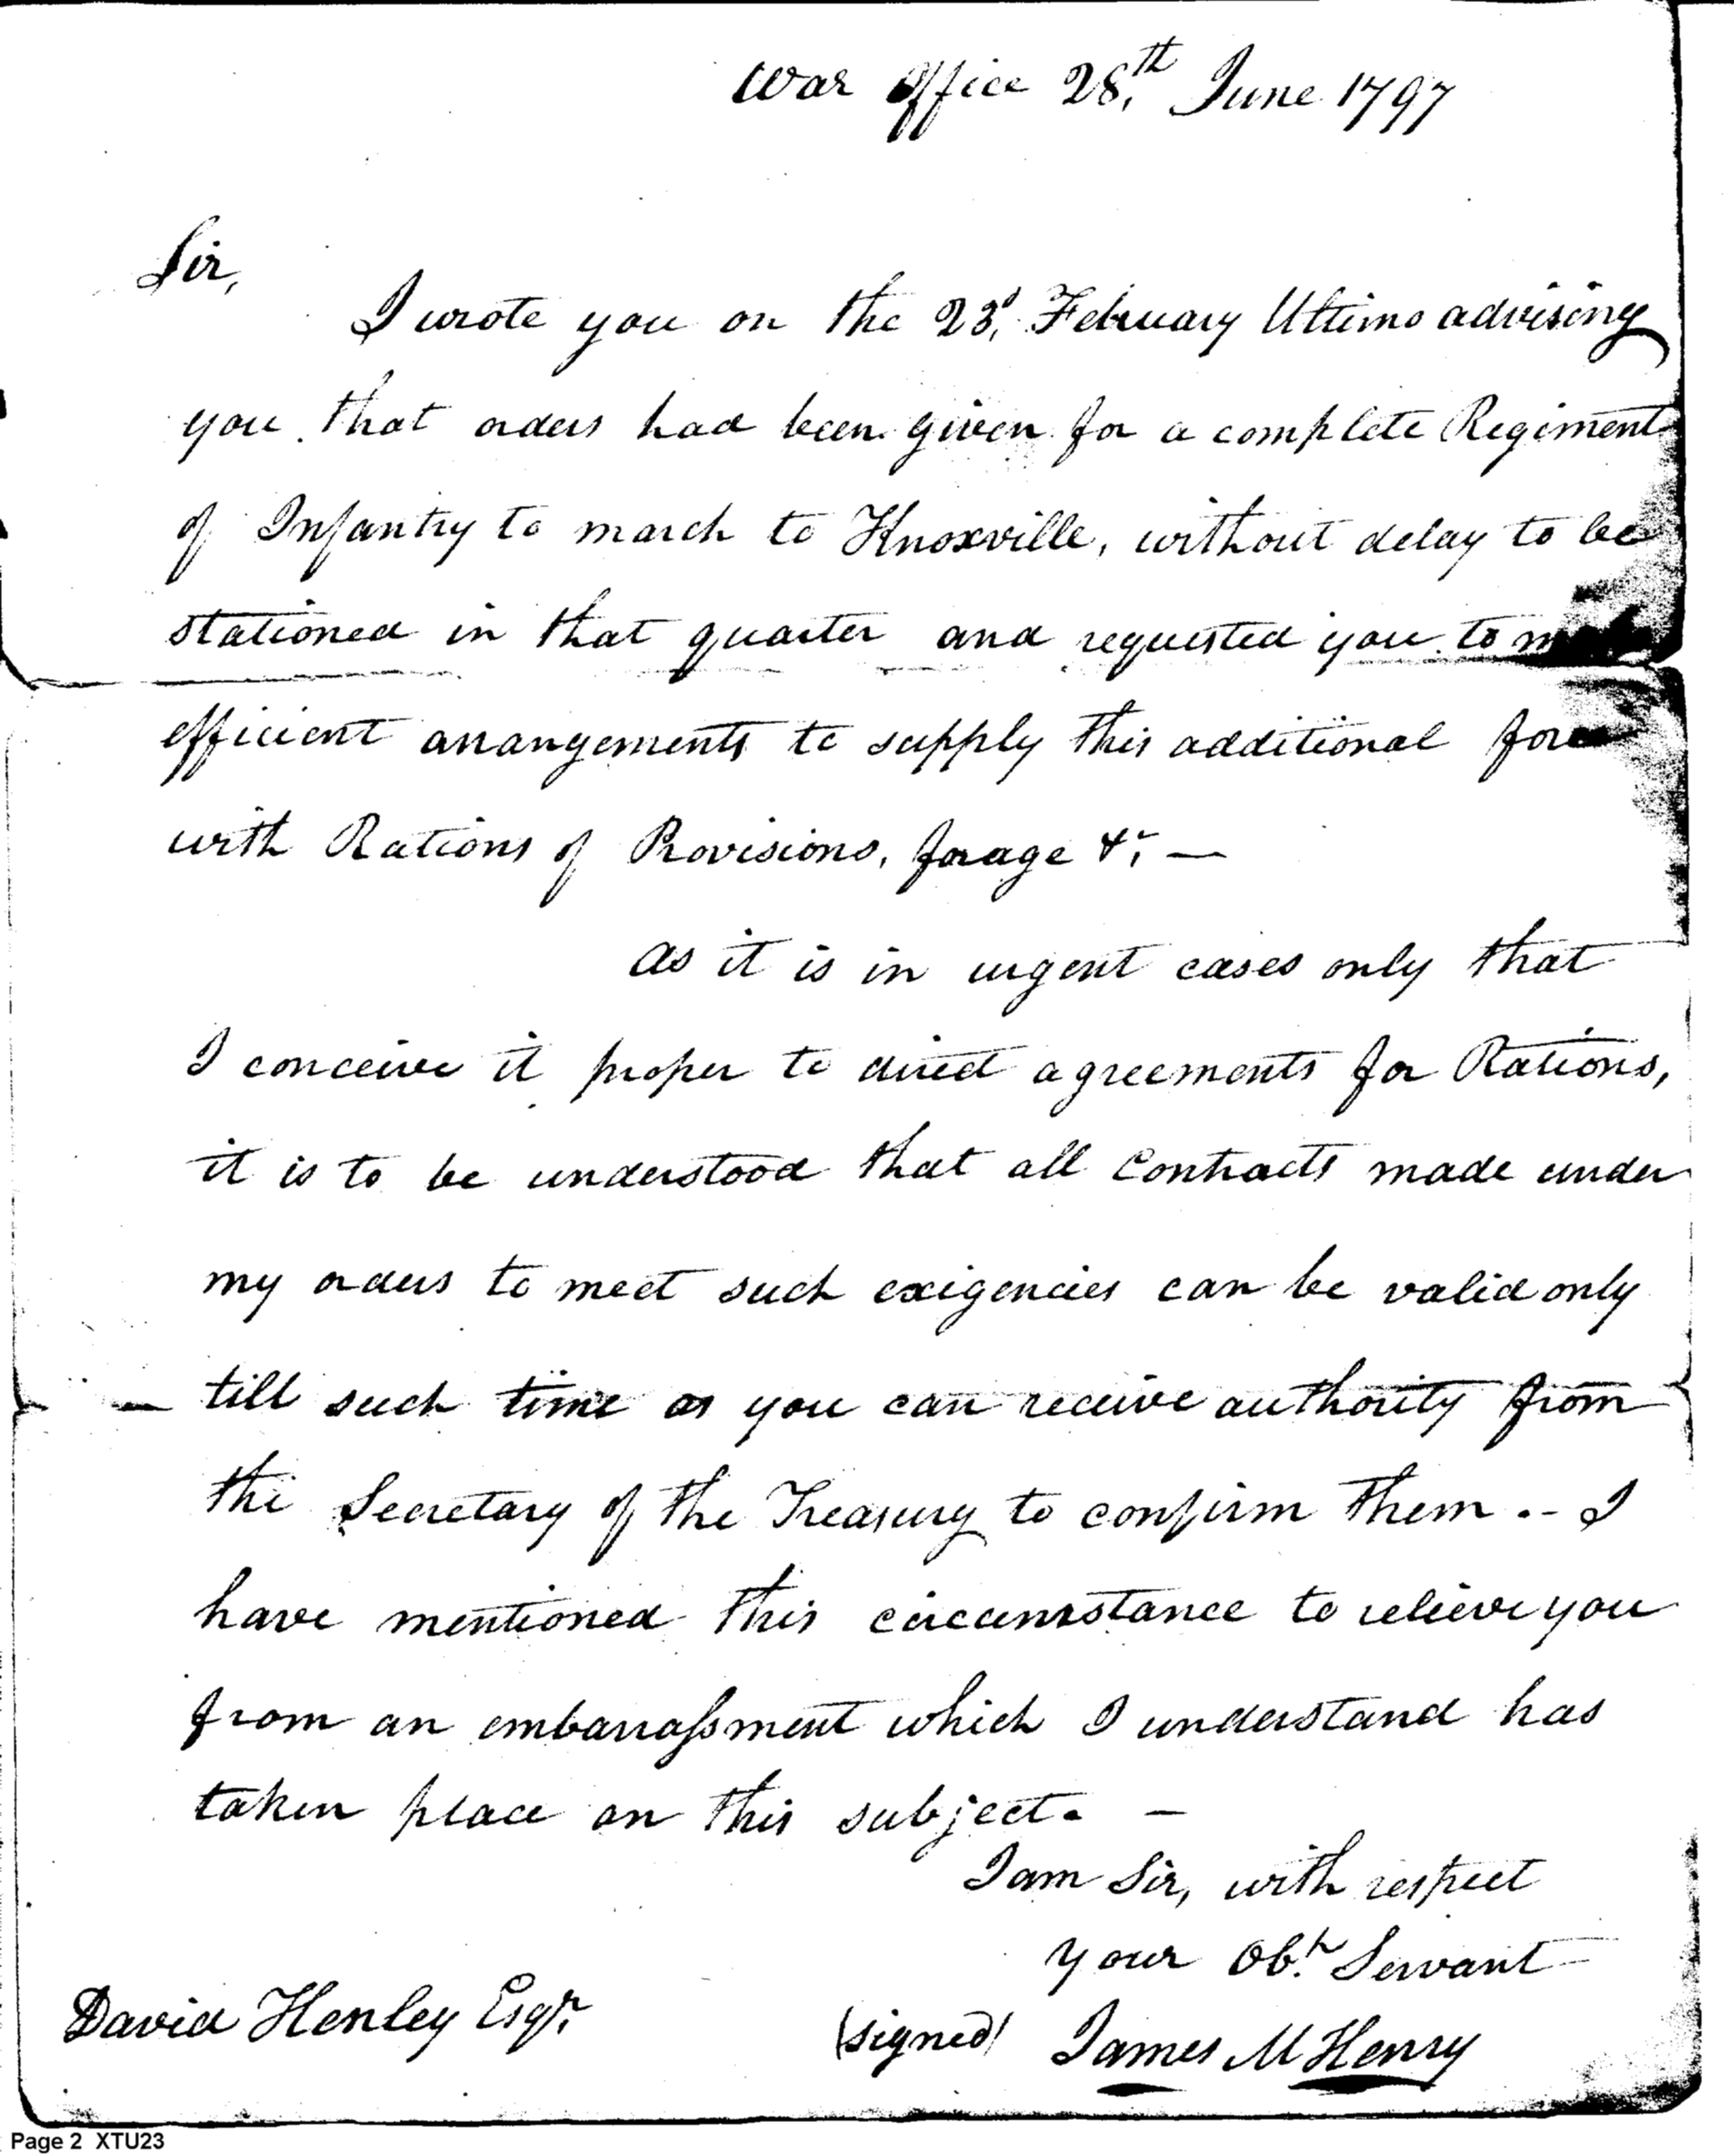 War Office 28th June 1797
Sir,
I wrote you on the 23d February Ultimo advising
you that orders had been given for a complete Regiment
of Infantry to march to Knoxville, without delay to be
stationed in that quarter and requested you to
efficient arrangements to supply this additional force
with Rations of Provisions, forage &c —
As it is in urgent cases only that
I conceive it proper to direct agreements for Rations,
it is to be understood that all Contracts made under
my orders to meet such exigencies can be valid only
till such time as you can receive authority from
the Secretary of the Treasury to confirm them .- I
have mentioned this circumstance to relieve you
from an embarraſsment which I understand has
taken place on this subject. —
I am Sir, with respect
your Obt. Servant
David Henley Esqr.
(signed) James McHenry
Page 2 XTU23